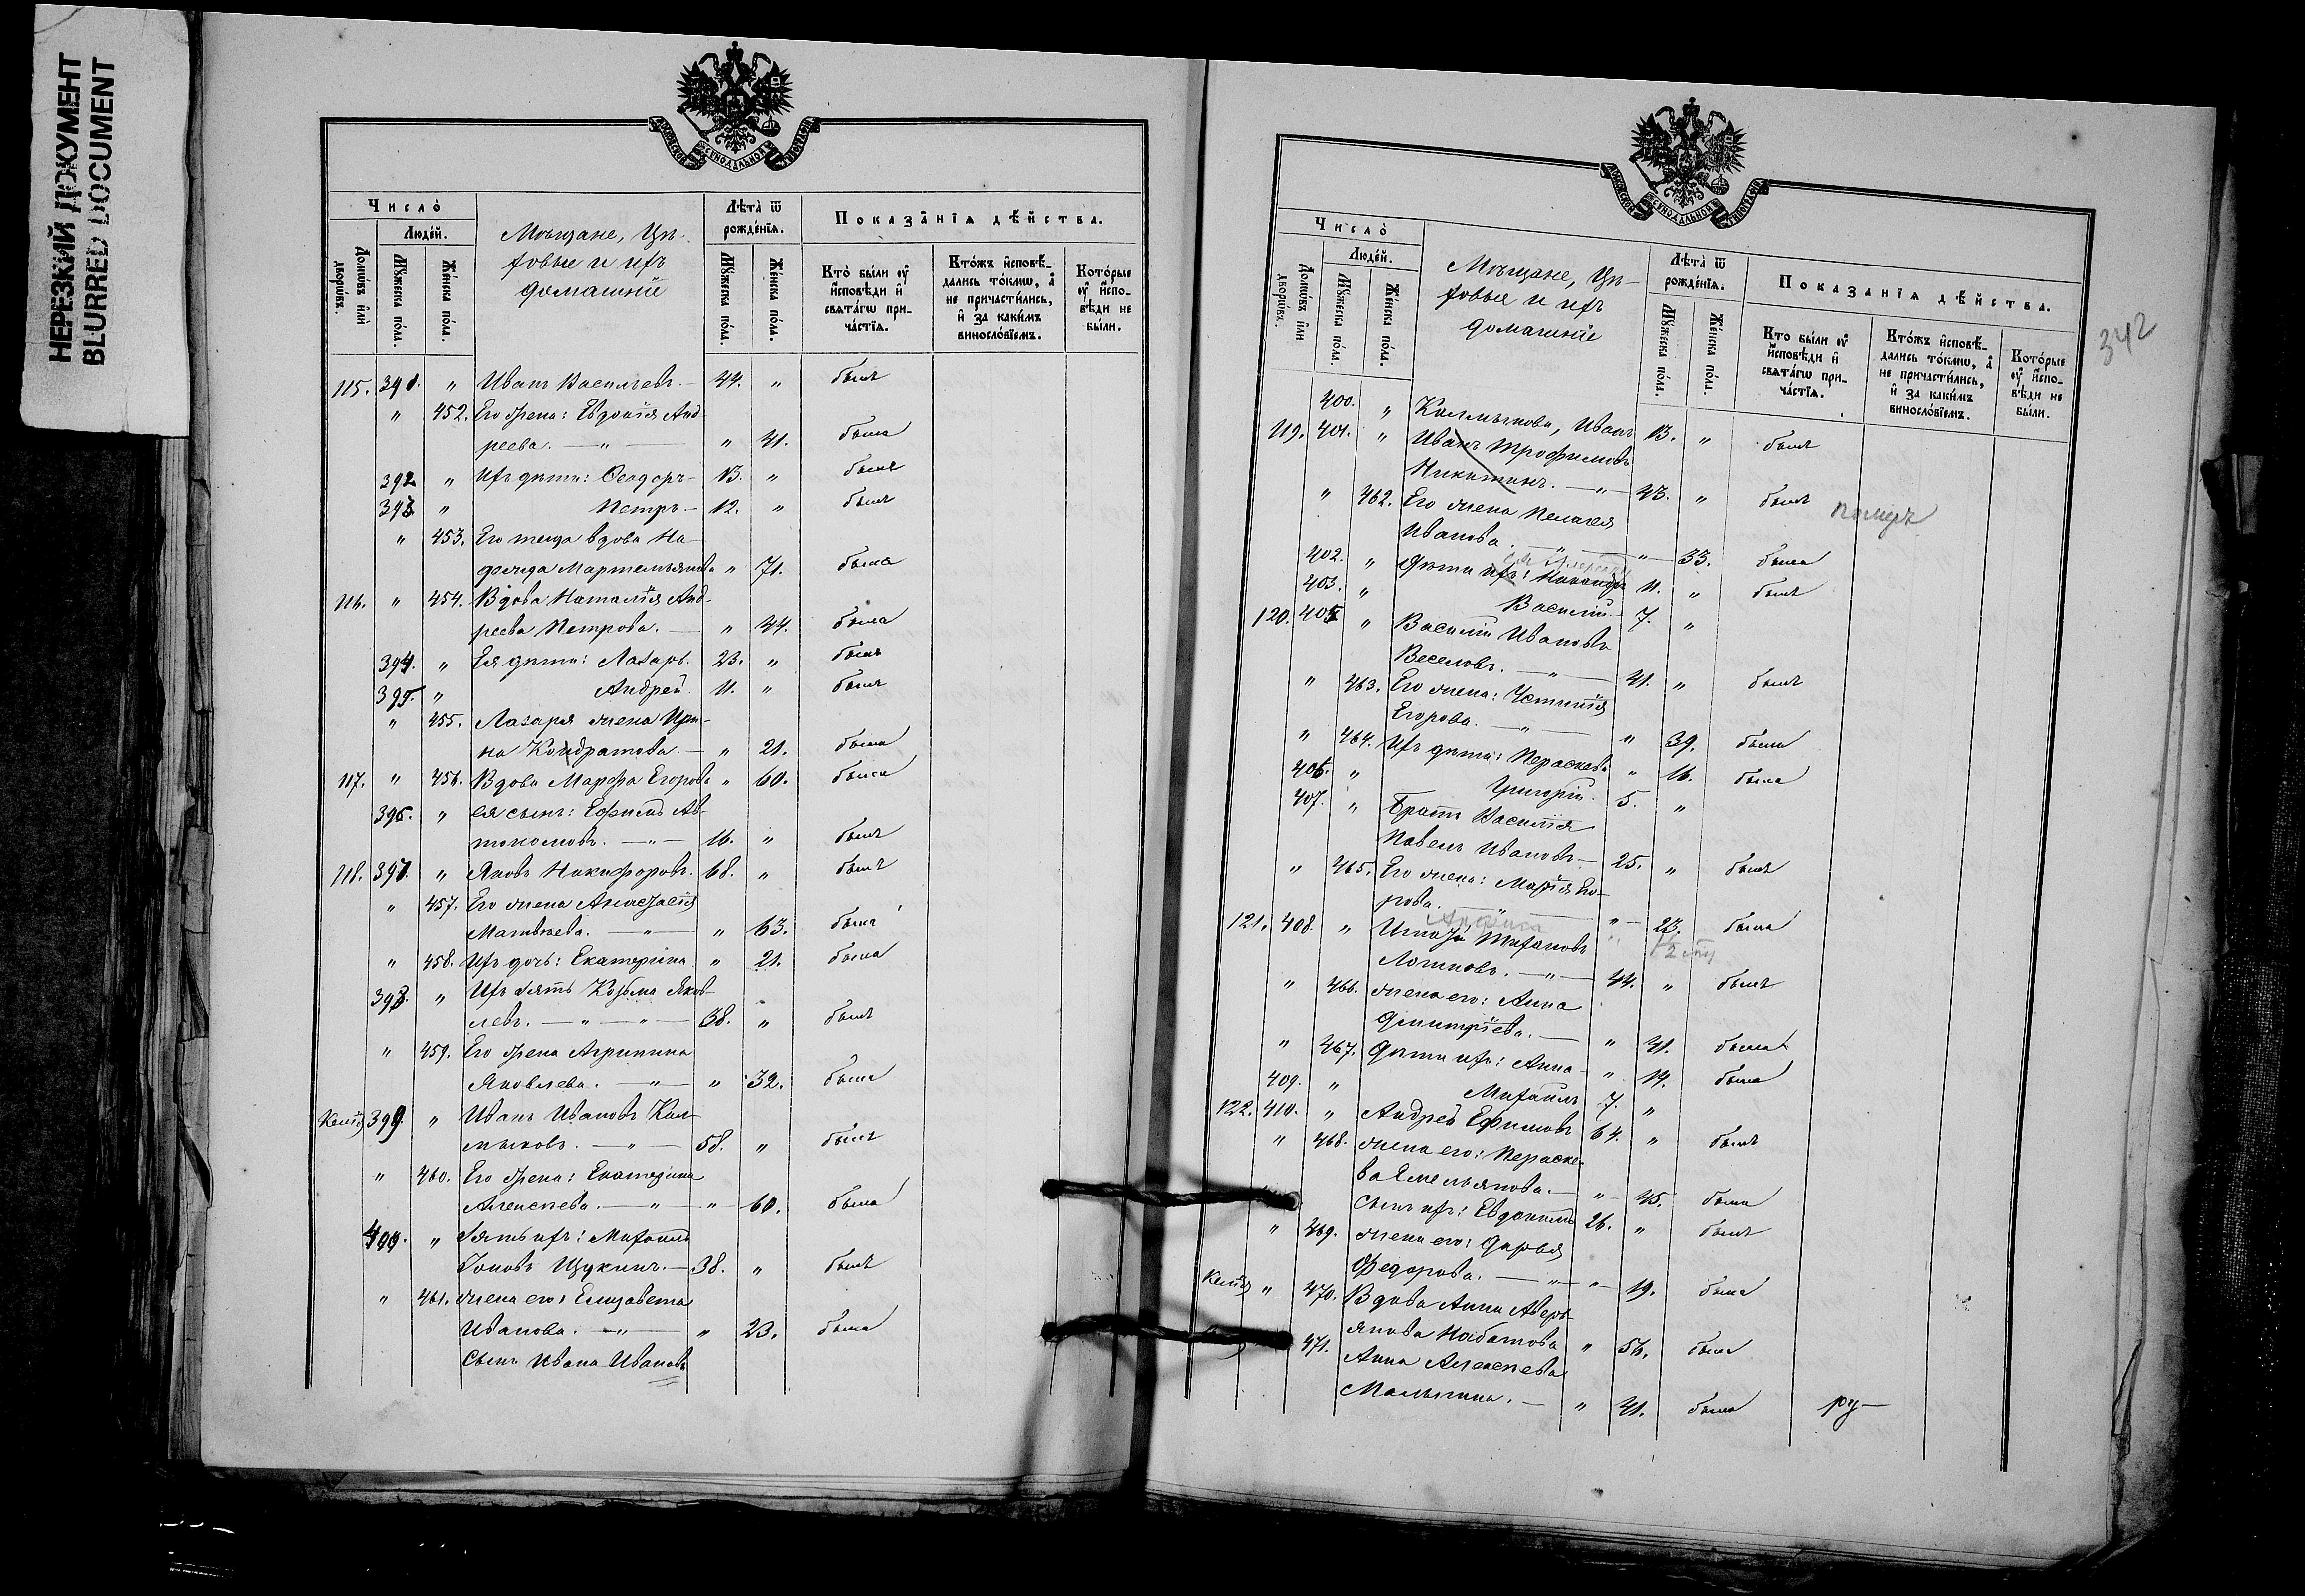 НЕРЕЗКИЙ ДОКУМЕНТ
BLURRED DOCUMENT
Число̀
Людéй.
Домѡ́въ и҆лѝ дворѡ́въ.
Мꙋ́жеска по́ла.
Же́нска по́ла.
Мѣщане, Цѣ-
ховые и ихъ
домашніе
Лѣта̀ ѿ рожде́нїѧ.
Мꙋ́жеска по́ла.
Же́нска по́ла.
Показа̑нїѧ дѣ́йства.
Кто̀ бы́ли ᲂу҆ и҆сповѣ́ди и҆ свѧта́гѡ прича́стїѧ.
Кто́жъ и҆сповѣ́дались то́кмѡ, а҆ не причасти́лись, и҆ за каки́мъ винослóвїемъ.
Кото́рые ᲂу҆ и҆сповѣ́ди не бы́ли.
115. 391. " Иванъ Васильевъ. — 44. " былъ
" 452. Его жена: Евдокія Анд-
реева. — " — " 41. была
392 " Ихъ дѣти: Ѳеодоръ — 13. " былъ
393. " Петръ — 12. " былъ
" 453. Его теща вдова На-
дежда Мартемьянова " 71. была
116. " 454. Вдова Наталія Анд-
реева Петрова. — " 44. была
394. " Ея дѣти: Лазарь. 23. " былъ
395. " Андрей. 11. " былъ
" 455. Лазаря жена Ири-
на Кондратова. — " 21. была
117. " 456. Вдова Марфа Егорова " 60. была
396. " ея сынъ: Ефимъ Ав-
тономовъ. — " — 16. " былъ
118. 397. " Яковъ Никифоровъ. 68. " былъ
" 457. Его жена Анастасія
Матвѣева. — " — " 63. была
" 458. Ихъ дочь: Екатерина " 21. была
398. " Ихъ зять Козьма Яков-
левъ. — " — " — 38. " былъ
" 459. Его жена Агрипина
Яковлева. — " — " 32. была
399. " Иванъ Ивановъ Кал-
мыковъ. — " — 58. " былъ
" 460. Его жена: Екатерина
Алексѣева. — " — " 60. была
400. " Зять ихъ: Михаилъ
Іоновъ Щукинъ. — 38. " былъ
" 461. жена его: Елизавета
Иванова. — " — " 23. была
Сынъ Ивана Иванова
342
Число̀
Людéй.
Домѡ́въ и҆лѝ дворѡ́въ.
Мꙋ́жеска по́ла.
Же́нска по́ла.
Мѣщане, Цѣ-
ховые и ихъ
домашніе
Лѣта̀ ѿ рожде́нїѧ.
Мꙋ́жеска по́ла.
Же́нска по́ла.
Показа̑нїѧ дѣ́йства.
Кто бы́ли ᲂу҆ и҆сповѣ́ди и҆ свѧта́гѡ прича́стїѧ.
Кто́жъ и҆сповѣ́дались то́кмѡ, а҆ не причасти́лись, и҆ за каки́мъ винослóвїемъ.
Кото́рые ᲂу҆ и҆сповѣ́ди не бы́ли.
400. " Калмыкова, Иванъ 13. " былъ
119. 401. " Иванъ Трофимовъ
Никитинъ. — " — 43. " былъ померъ
" 462. Его жена Пелагея
Иванова. — " — " 33. была
402. " Дѣти ихъ: 11. " былъ
403. " Василій. 7. "
120. 405 " Василій Ивановъ
Веселовъ. — " — 41. " былъ
" 463. Его жена: Устинія
Егорова. — " — " 39. была
" 464. Ихъ дѣти: Параскева " 16. была
406. " Григорій. 5. "
407. " Братъ Василія
Павелъ Ивановъ — 25. " былъ
" 465. Его жена: Марія Его-
рова. — " — " 23. была
121. 408. " Игнатій
44. " былъ
" 466. жена его: Анна
Дмитріева. — " 41. была
" 467. Дѣти ихъ: Анна — " 14. была
409. " Михаилъ 7. "
122. 410. " Андрей Ефимовъ 64. " былъ
" 468. жена его: Параске-
ва Емельянова. — " 45. была
Сынъ ихъ: Евдокимъ 26. " былъ
" 469. жена его: Дарья
Ѳедорова. — " — " 19. была
" 470. Вдова Анна Аверь-
янова Набатова " 56. была
471. Анна Алексѣева
Малыгина. — " 41. была ру—